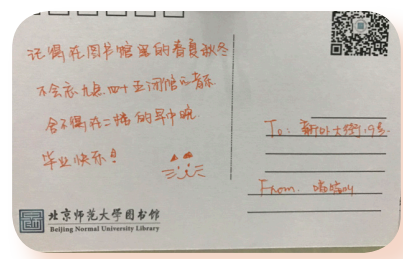 记得在图书馆里的春夏秋冬
不会忘九点四十五闭馆的音乐
舍不得在二楼的早中晚
毕业快乐！
To: 新外大街19号
From.
北京师范大学图书馆
Beijing Normal University Library